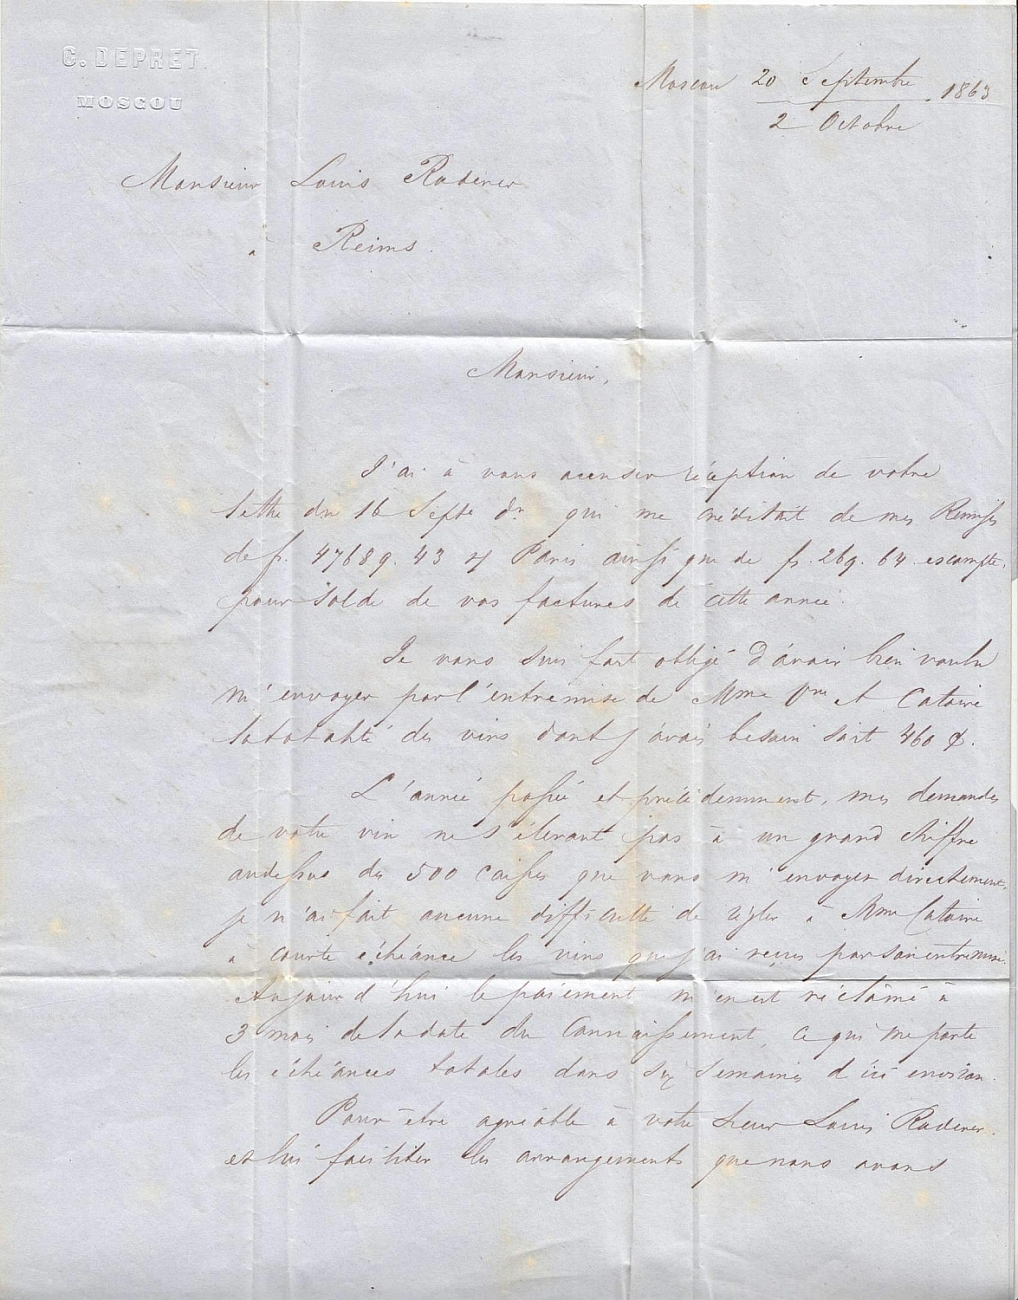 C. DEPRET.
MOSCOU
Moscou 20 Septembre 1863
2 Octobre
Monsieur Louis Roederer
à Reims.
Monsieur,
J'ai à vous accuser réception de votre
lettre du 16 Septe dr qui me créditait de mes Remises
de fr. 47689. 43 s/ Paris ainsi que de fr. 269. 64. escompte.
pour solde de vos factures de cette année.
Je vous suis fort obligé d'avoir bien voulu
m'envoyer par l'entremise de Mme Vve A Catoire
la totalité des vins dont j'avais besoin soit 460
L'année passée et précédemment, mes demandes
de votre vin ne s'élevant pas à un grand chiffre
au dessus des 500 caisses que vous m'envoyez directement,
je n'ai fait aucune difficulté de régler à Mme Catoire
à courte échéance les vins que j'ai reçus par son entremise.
Aujourd'hui le paiement m'en est réclamé à
3 mois de la date du Connaissement, ce qui me porte
les échéances totales dans six semaines d'ici environ.
Pour être agréable à votre Sieur Louis Roederer.
et lui faciliter les arrangements que nous avons